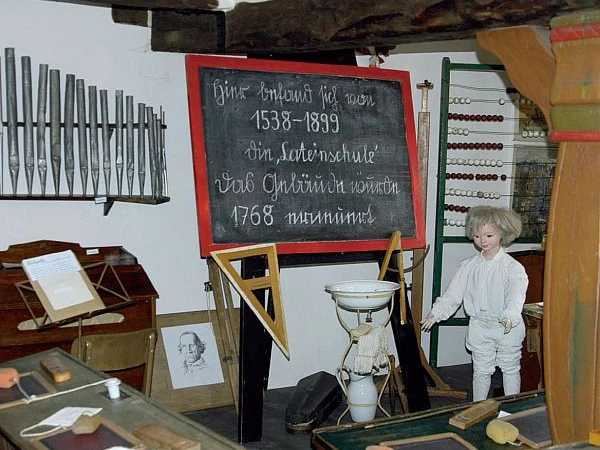 Hier befand sich von
1538-1899
die „Lateinschule“
das Gebäude wurde
1768 erneuert